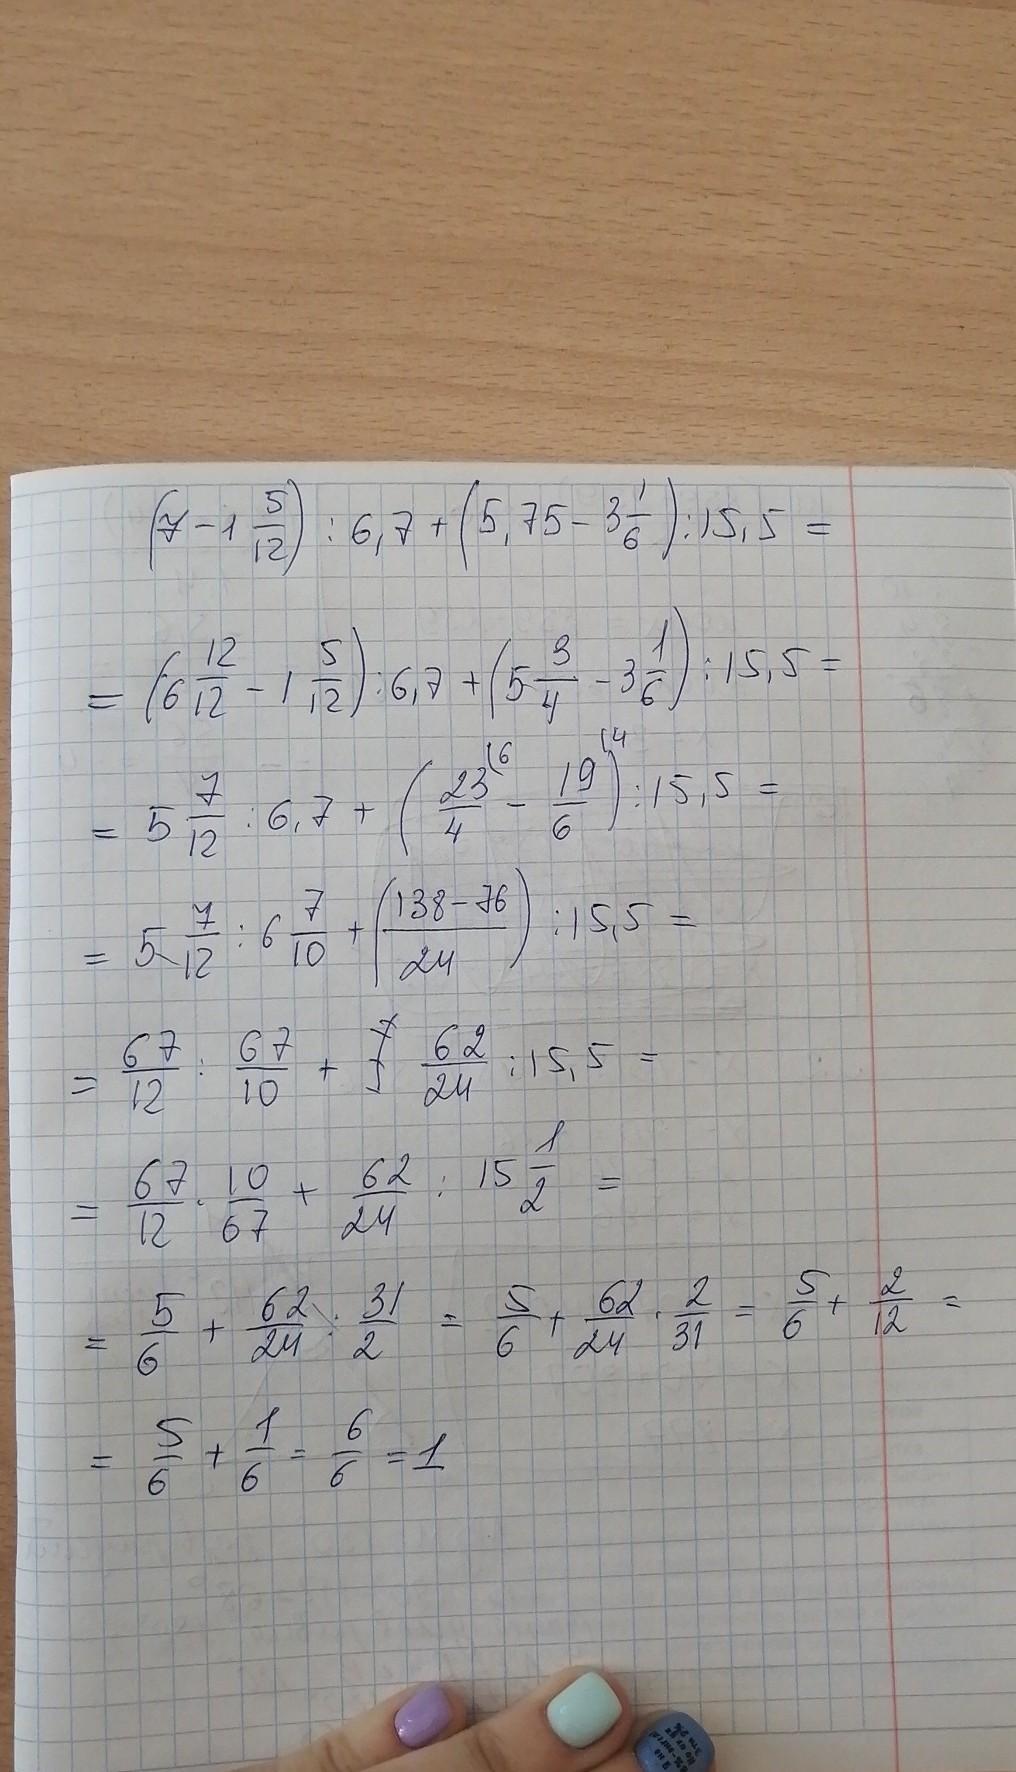 (7 − 1 5/12) : 6,7 + (5,75 − 3 1/6) : 15,5 =
= (6 12/12 − 1 5/12) : 6,7 + (5 3/4 − 3 1/6) : 15,5 =
= 5 7/12 : 6,7 + (23/4 (6 − 19/6 (4) : 15,5 =
= 5 7/12 : 6 7/10 + ((138 − 76)/24) : 15,5 =
= 67/12 : 67/10 + 62/24 : 15,5 =
= 67/12 · 10/67 + 62/24 : 15 1/2 =
= 5/6 + 62/24 : 31/2 = 5/6 + 62/24 · 2/31 = 5/6 + 2/12 =
= 5/6 + 1/6 = 6/6 = 1